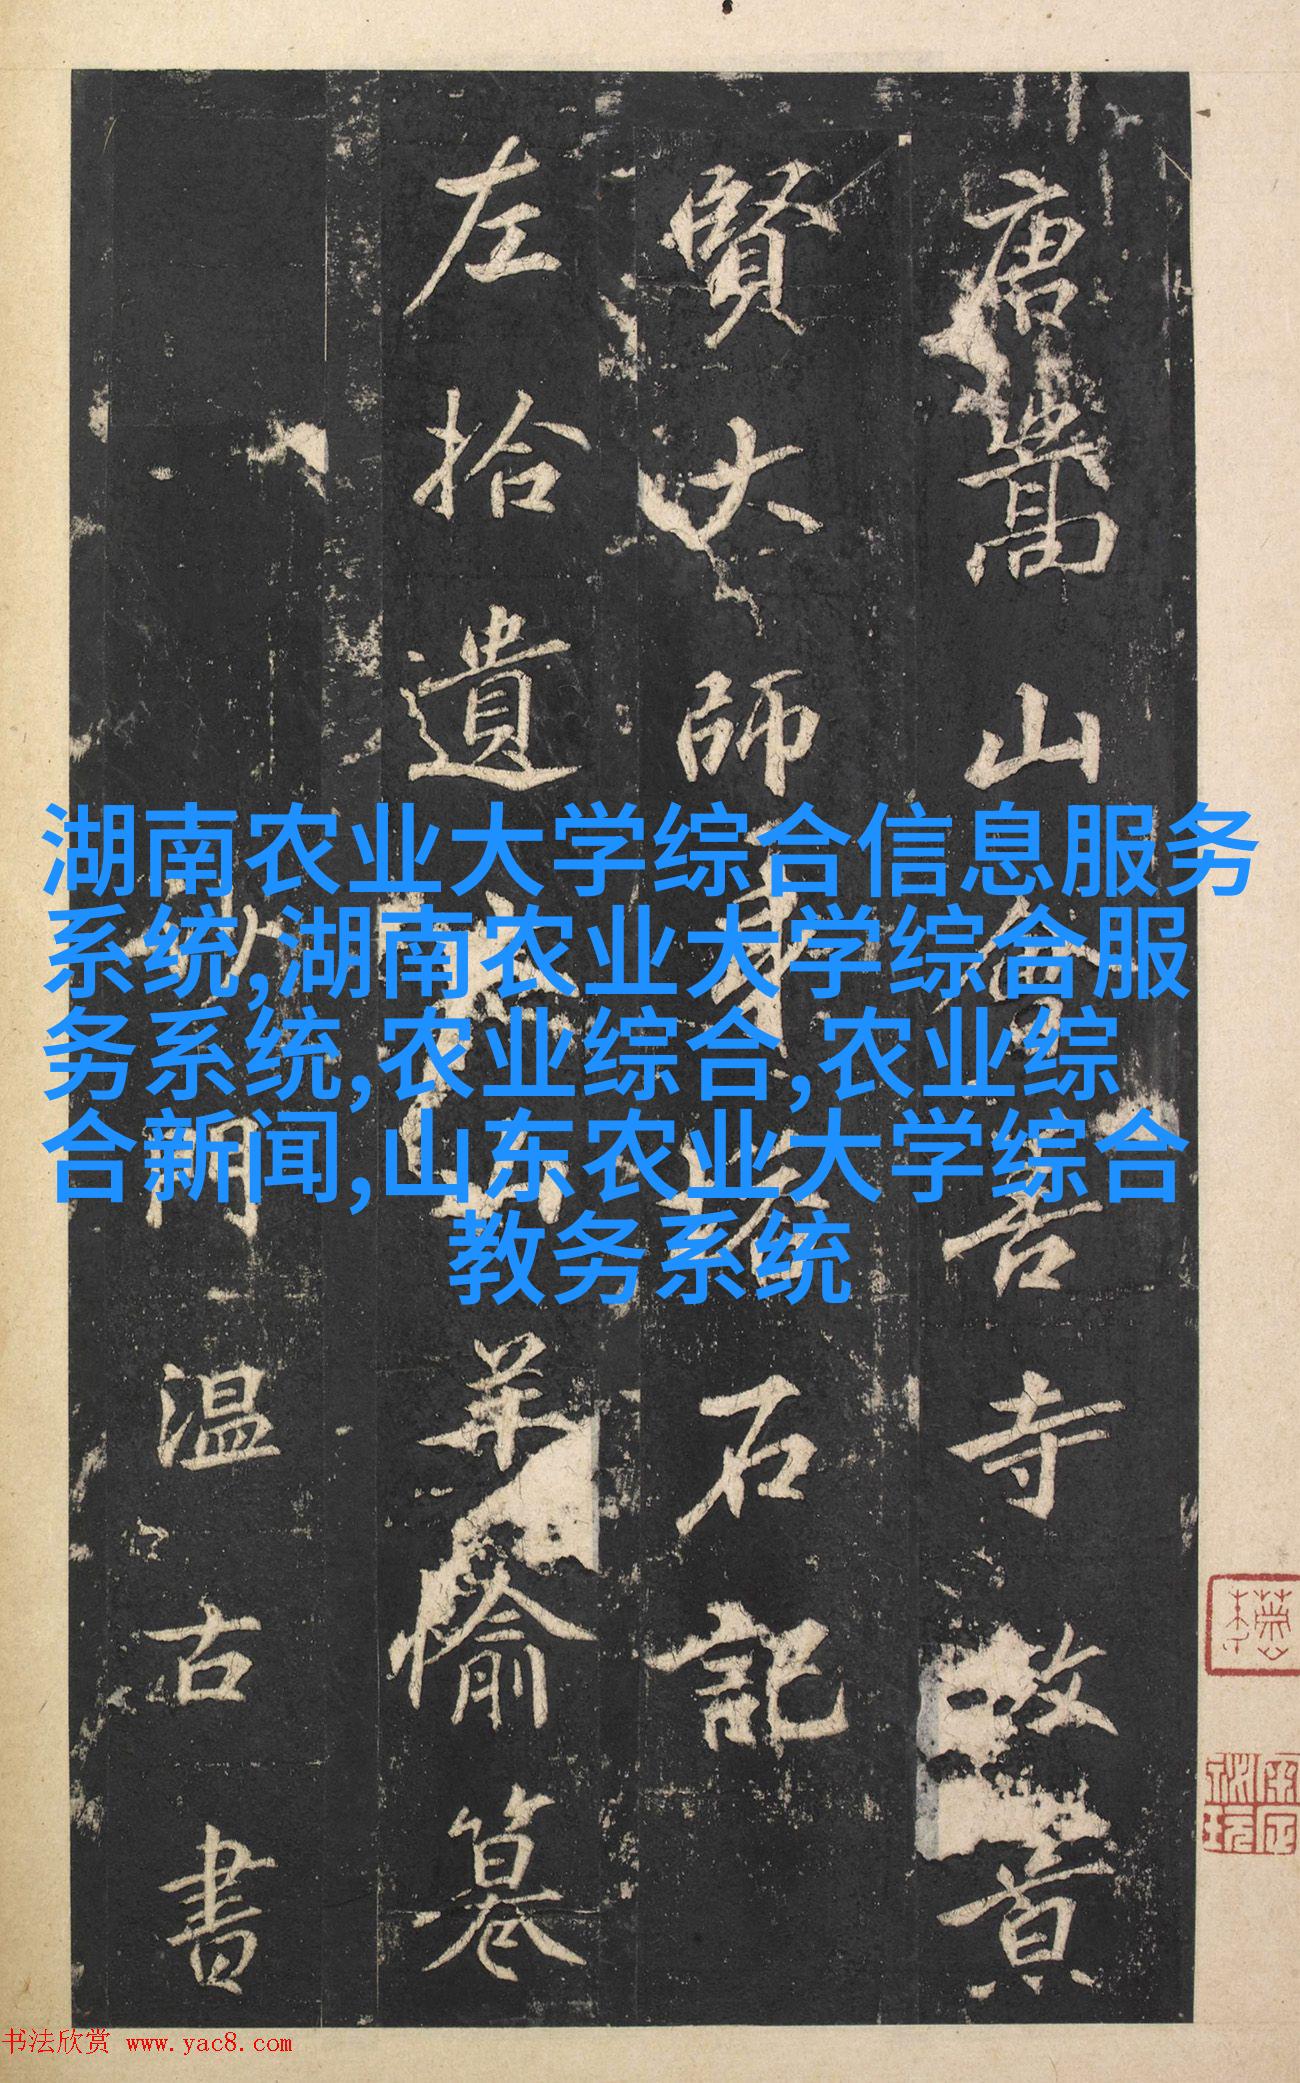 唐嵩山會善寺故景
賢大師身塔石記
左拾遺太山羊愉篹
沙門溫古書
湖南农业大学综合信息服务
系统,湖南农业大学综合服
务系统,农业综合,农业综
合新闻,山东农业大学综合
教务系统
书法欣赏 www.yac8.com